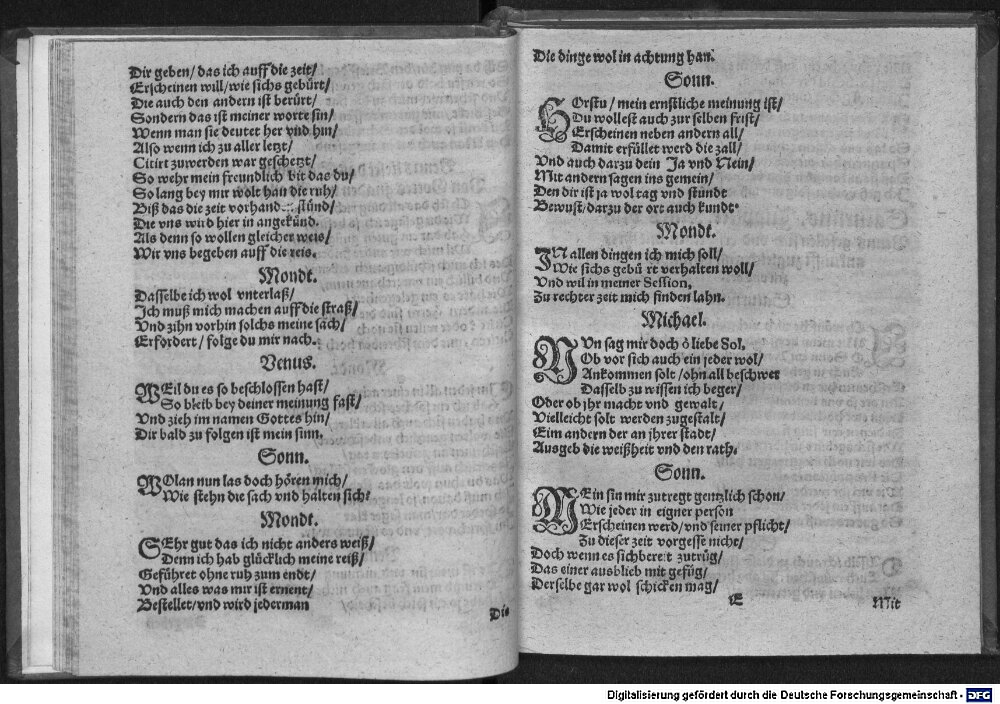 Dir geben/ das ich auff die zeit/
Erscheinen will/ wie sichs gebürt/
Die auch den andern ist berürt/
Sondern das ist meiner worte sin/
Wenn man sie deutet her vnd hin/
Also wenn ich zu aller letzt/
Citirt zuwerden war geschetzt/
So wehr mein freundlich bit das du/
So lang bey mir wolt han die ruh/
Biß das die zeit vorhanden stünd/
Die vns wird hier in angekünd.
Als denn so wollen gleicher weis/
Wir vns begeben auff die reis.
Mondt.
Dasselbe ich wol vnterlaß/
Ich muß mich machen auff die straß/
Vnd zihn vorhin solchs meine sach/
Erfordert/ folge du mir nach.
Venus.
WEil du es so beschlossen hast/
So bleib bey deiner meinung fast/
Vnd zieh im namen Gottes hin/
Dir bald zu folgen ist mein sinn.
Sonn.
WOlan nun las doch hören mich/
Wie stehn die sach vnd halten sich?
Mondt.
SEhr gut das ich nicht anders weiß/
Denn ich hab glücklich meine reiß/
Geführet ohne ruh zum endt/
Vnd alles was mir ist ernent/
Bestellet/ vnd wird jederman
Die
Die dinge wol in achtung han.
Sonn.
HOrstu/ mein ernstliche meinung ist/
Du wollest auch zur selben frist/
Erscheinen neben andern all/
Damit erfüllet werd die zall/
Vnd auch darzu dein Ja vnd Nein/
Mit andern sagen ins gemein/
Den dir ist ja wol tag vnd stundt
Bewust/ darzu der ort auch kundt.
Mondt.
IN allen dingen ich mich soll/
Wie sichs gebürt verhalten woll/
Vnd wil in meiner Session,
Zu rechter zeit mich finden lahn.
Michael.
NVn sag mir doch ô liebe Sol,
Ob vor sich auch ein jeder wol/
Ankommen solt/ ohn all beschwer
Dasselb zu wissen ich beger/
Oder ob jhr macht vnd gewalt/
Vielleicht solt werden zugestalt/
Eim andern der an jhrer stadt/
Ausgeb die weißheit vnd den rath.
Sonn.
MEin sin mir zutregt gentzlich schon/
Wie jeder in eigner person
Erscheinen werd/ vnd seiner pflicht/
Zu dieser zeit vorgesse nicht/
Doch wenn es sich zutrüg/
Das einer ausblieb mit gefüg/
Derselbe gar wol schicken mag/
E
Mit
Digitalisierung gefördert durch die Deutsche Forschungsgemeinschaft - DFG